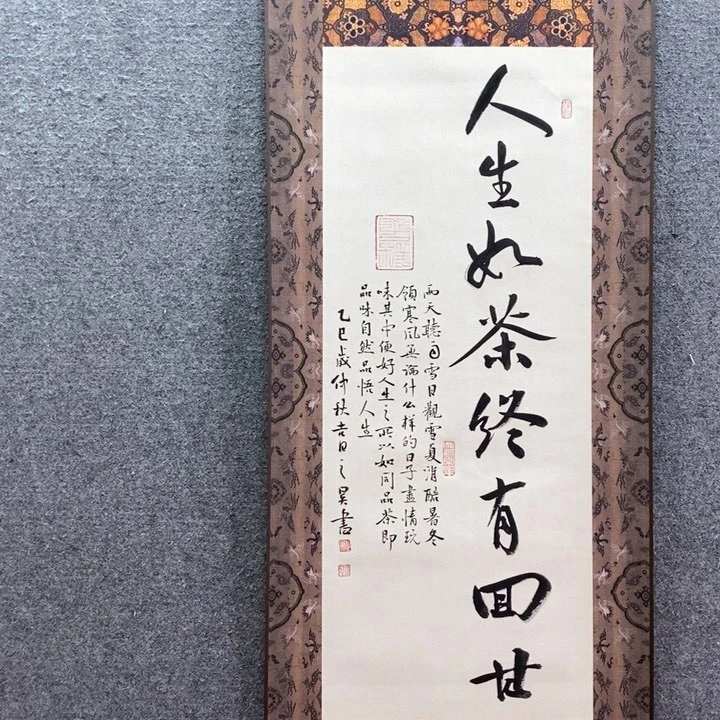 人生如茶终有回甘
雨天聽雨雪日觀雪夏消酷暑冬
領寒风无論什么样的日子盡情玩
味其中便好人生之所以如同品茶即
品味自然品悟人生
乙巳歲仲秋吉日之昊書